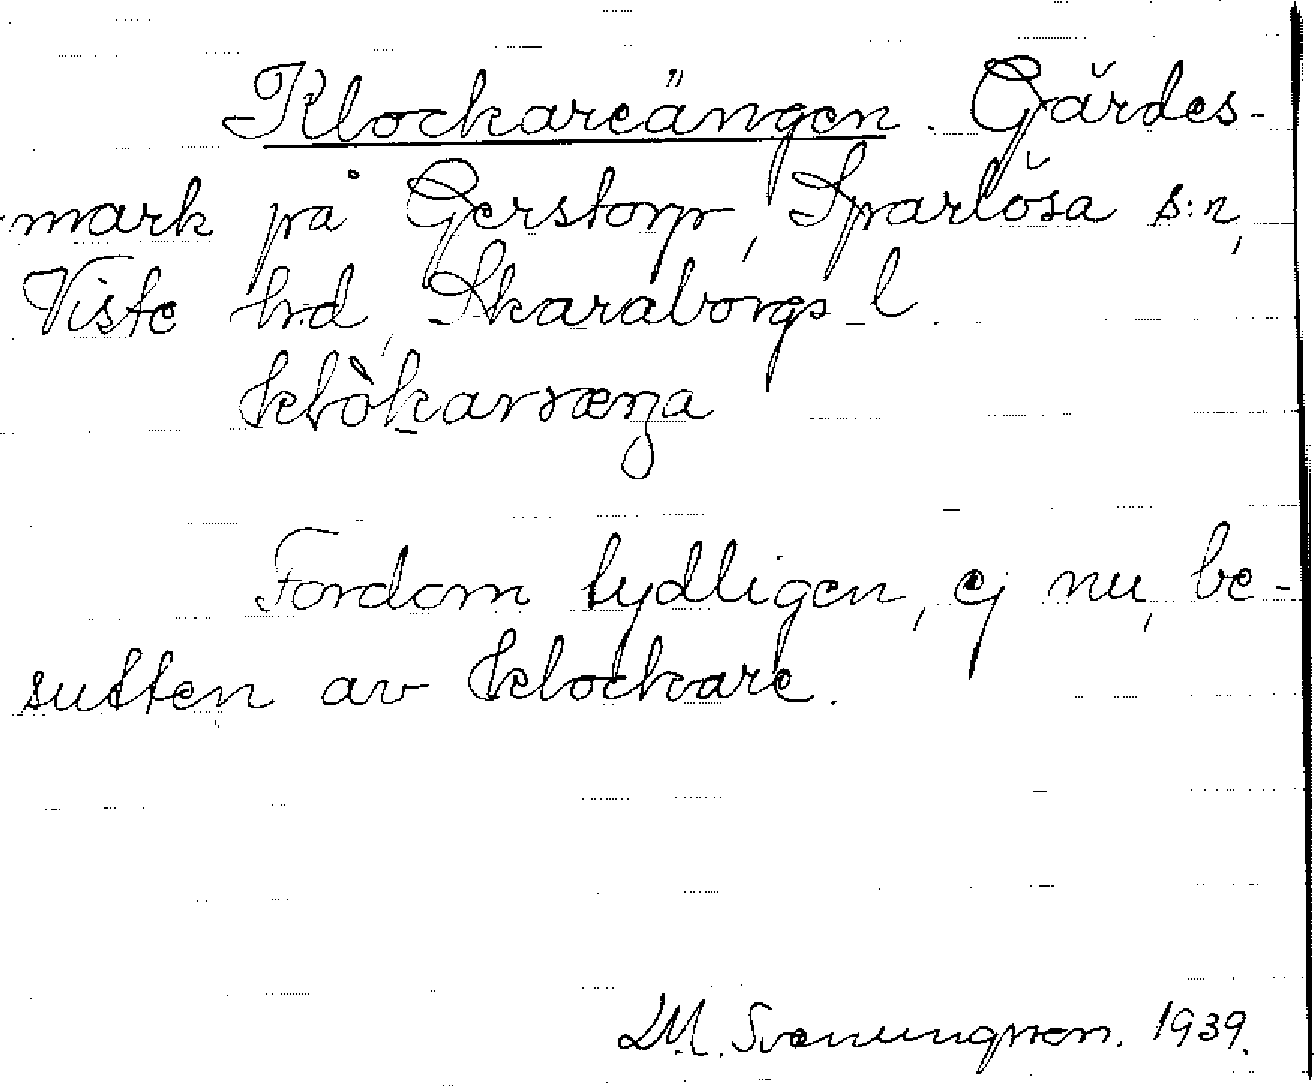 Klockareängen. Gärdes-
mark på Gerstorp, Sparlösa s:n,
Viste hd, Skaraborgs l.
Fordom tydligen, ej nu, be-
sutten av klockare.
D.M. Svenungsson. 1939.